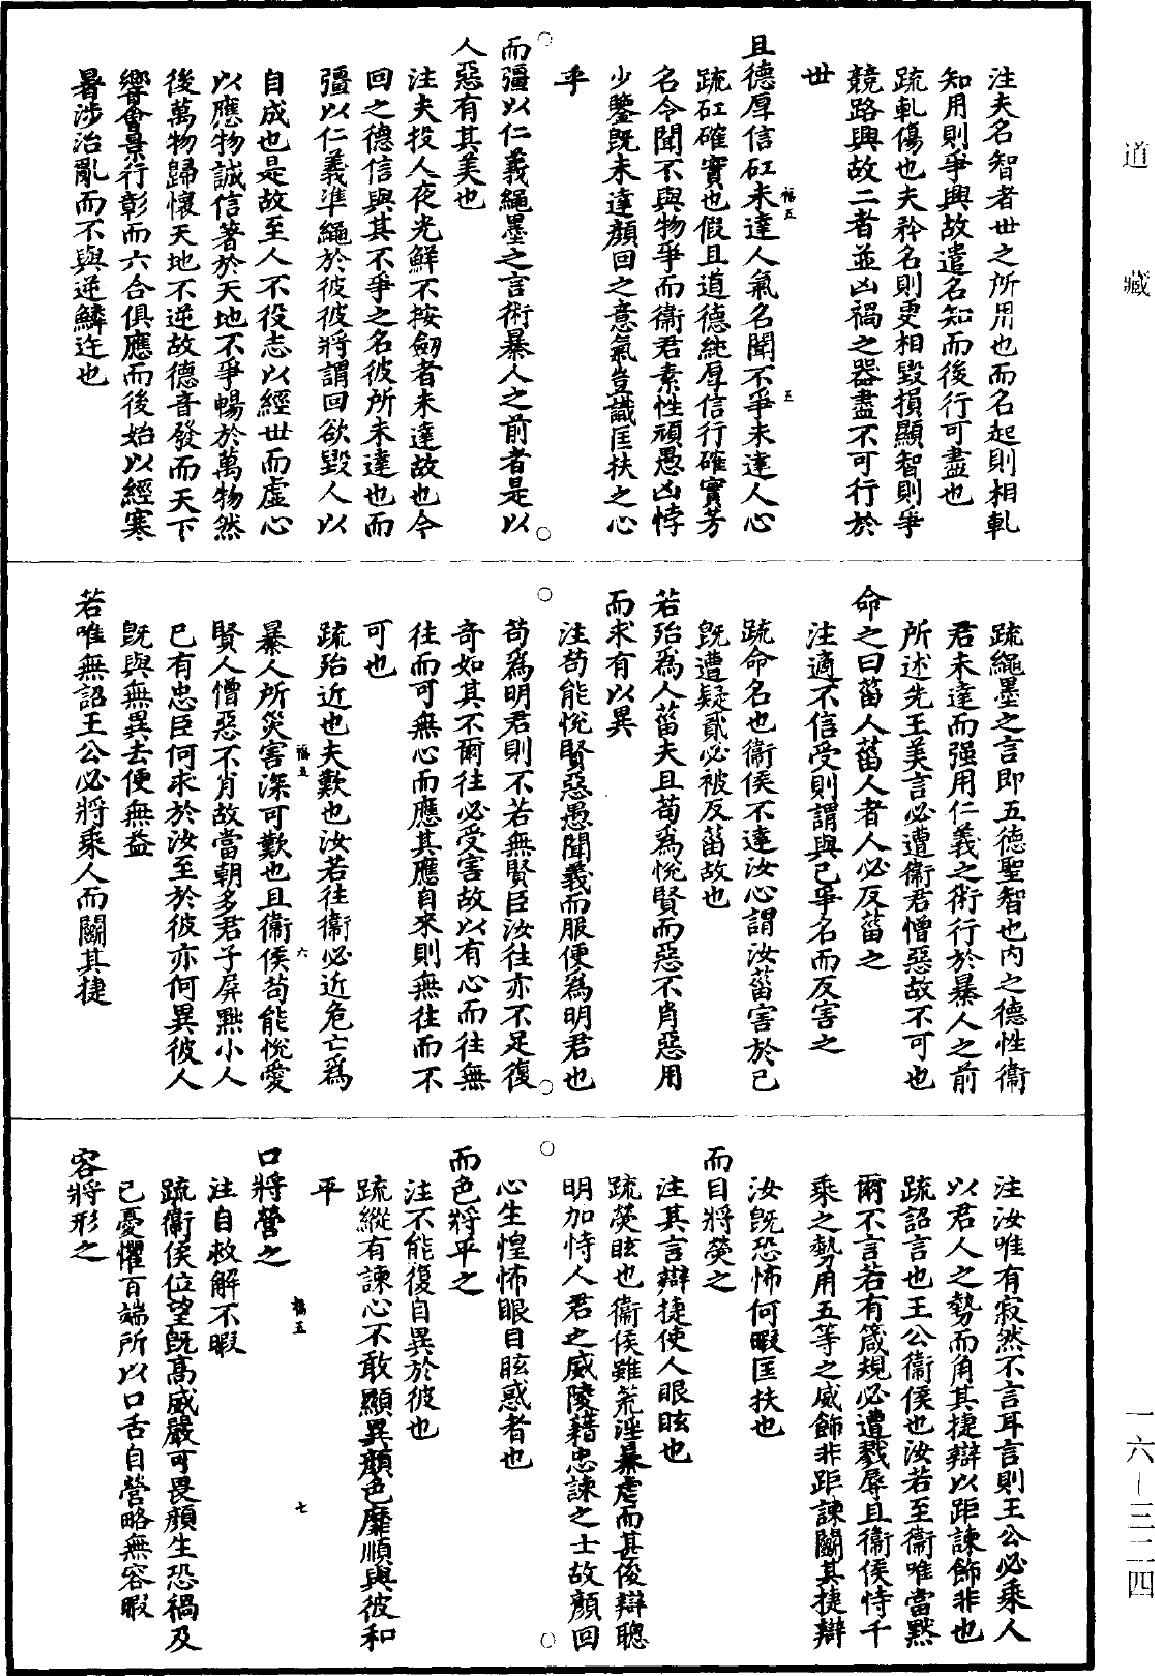 道藏
注夫名智者世之所用也而名起則相軋
知用則爭興故遣名知而後行可盡也
疏軋傷也夫矜名則更相毀損顯智則爭
競路興故二者並凶禍之器盡不可行於
世
且德厚信矼未達人氣名聞不爭未達人心
疏矼確實也假且道德純厚信行確實芳
名令聞不與物爭而衞君素性頑愚凶悖
少鑒旣未達顏回之意氣豈識匡扶之心
乎
而彊以仁義繩墨之言術暴人之前者是以
人惡有其美也
注夫投人夜光鮮不按劒者未達故也今
回之德信與其不爭之名彼所未達也而
彊以仁義準繩於彼彼將謂回欲毀人以
自成也是故至人不役志以經世而虛心
以應物誠信著於天地不爭暢於萬物然
後萬物歸懷天地不逆故德音發而天下
響會景行彰而六合俱應而後始以經寒
暑涉治亂而不與逆鱗迕也
福五
五
疏繩墨之言即五德聖智也內之德性衞
君未達而强用仁義之術行於暴人之前
所述先王美言必遭衞君憎惡故不可也
命之曰菑人菑人者人必反菑之
注適不信受則謂與己爭名而反害之
疏命名也衞侯不達汝心謂汝菑害於己
旣遭疑貳必被反菑故也
若殆爲人菑夫且苟爲悅賢而惡不肖惡用
而求有以異
注苟能悅賢惡愚聞義而服便爲明君也
苟爲明君則不若無賢臣汝往亦不足復
奇如其不爾往必受害故以有心而往無
往而可無心而應其應自來則無往而不
可也
疏殆近也夫歎也汝若往衞必近危亡爲
暴人所災害深可歎也且衞侯苟能悅愛
賢人憎惡不肖故當朝多君子屏黜小人
已有忠臣何求於汝至於彼亦何異彼人
旣與無異去便無益
若唯無詔王公必將乘人而鬭其捷
福五
六
注汝唯有寂然不言耳言則王公必乘人
以君人之勢而角其捷辯以距諫飾非也
疏詔言也王公衞侯也汝若至衞唯當默
爾不言若有箴規必遭戮辱且衞侯恃千
乘之勢用五等之威飾非距諫鬭其捷辯
汝旣恐怖何暇匡扶也
而目將熒之
注其言辯捷使人眼眩也
疏熒眩也衞侯雖荒淫暴虐而甚俊辯聰
明加恃人君之威陵藉忠諫之士故顏回
心生惶怖眼目眩惑者也
而色將平之
注不能復自異於彼也
疏縱有諫心不敢顯異顏色靡順與彼和
平
口將營之
注自救解不暇
疏衞侯位望旣高威嚴可畏顏生恐禍及
己憂懼百端所以口舌自營略無容暇
容將形之
福五
七
一六—三二四